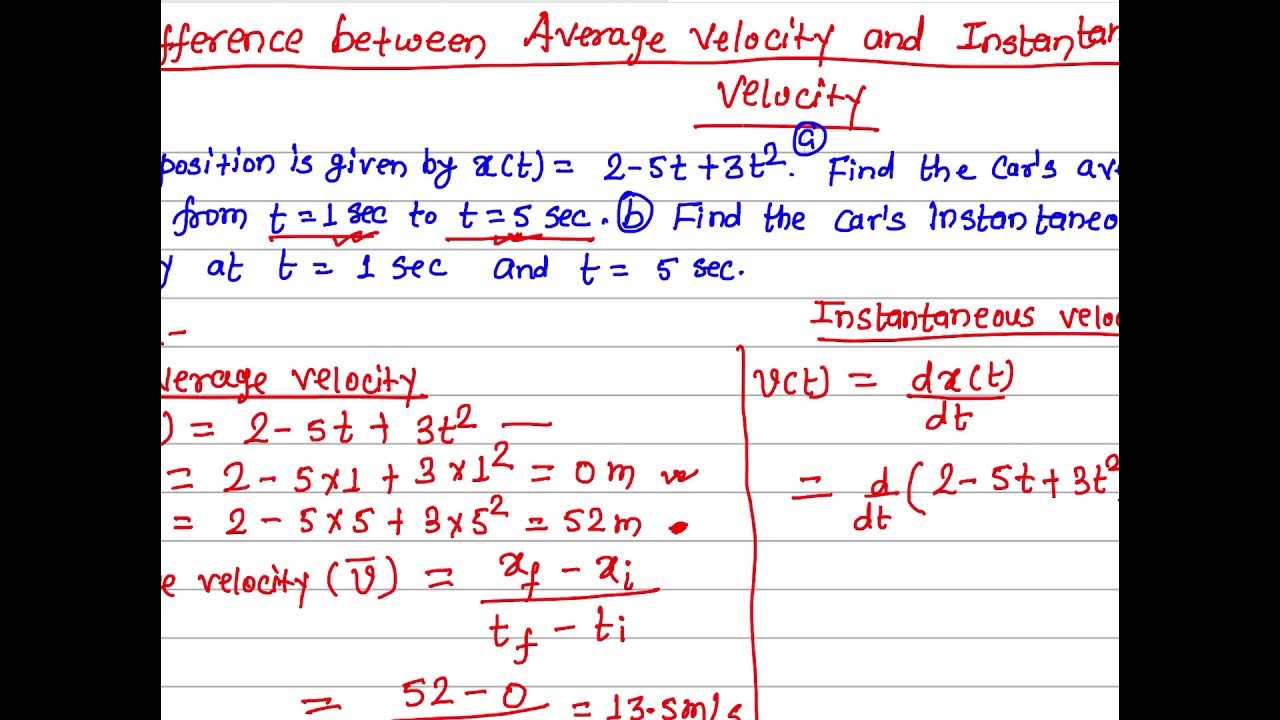 fference between Average velocity and Instantan
velocity
position is given by x(t) = 2-5t+3t². ⓐ Find the car's ave
from t=1 sec to t=5 sec. ⓑ Find the car's instantaneo
y at t = 1 sec and t = 5 sec.
-
verage velocity
) = 2-5t+3t² —
= 2-5×1+3×1² = 0m
= 2-5×5+3×5² = 52m
e velocity (v̅) = (xf - xi)/(tf - ti)
= 52-0 = 13.5m/s
Instantaneous veloc
v(t) = dx(t)/dt
= d/dt (2-5t+3t²